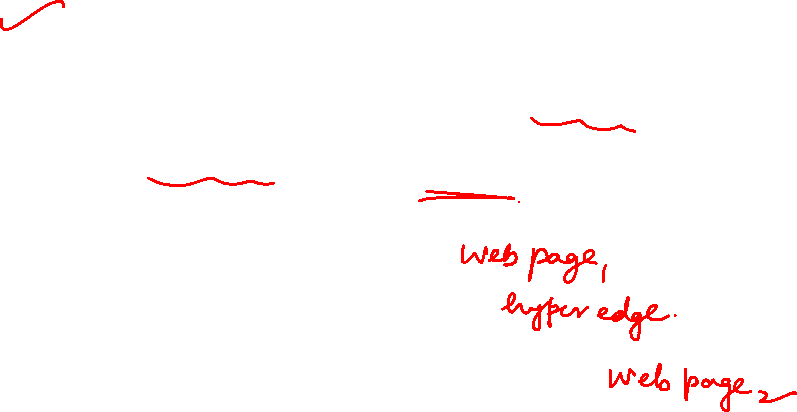 web page,
hyper edge.
web page 2